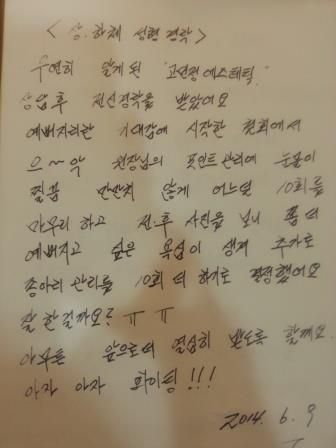 < 상.하체 성형 경락 >
우연히 알게된 "고선정에스테틱"
상담후 전신경락을 받았어요
예뻐지리란 기대감에 시작한 첫회에서
으~악 원장님의 포인트 관리에 눈물이
찔끔 만만치 않게 어느덧 10회를
마무리 하고 전.후 사진을 보니 좀 더
예뻐지고 싶은 욕심이 생겨 추가로
종아리 관리를 10회 더 하기로 결정했어요
잘 한걸까요? ㅠ ㅠ
아무튼 앞으로더 열심히 받도록 할께요
아자 아자 화이팅!!!
2014. 6. 9